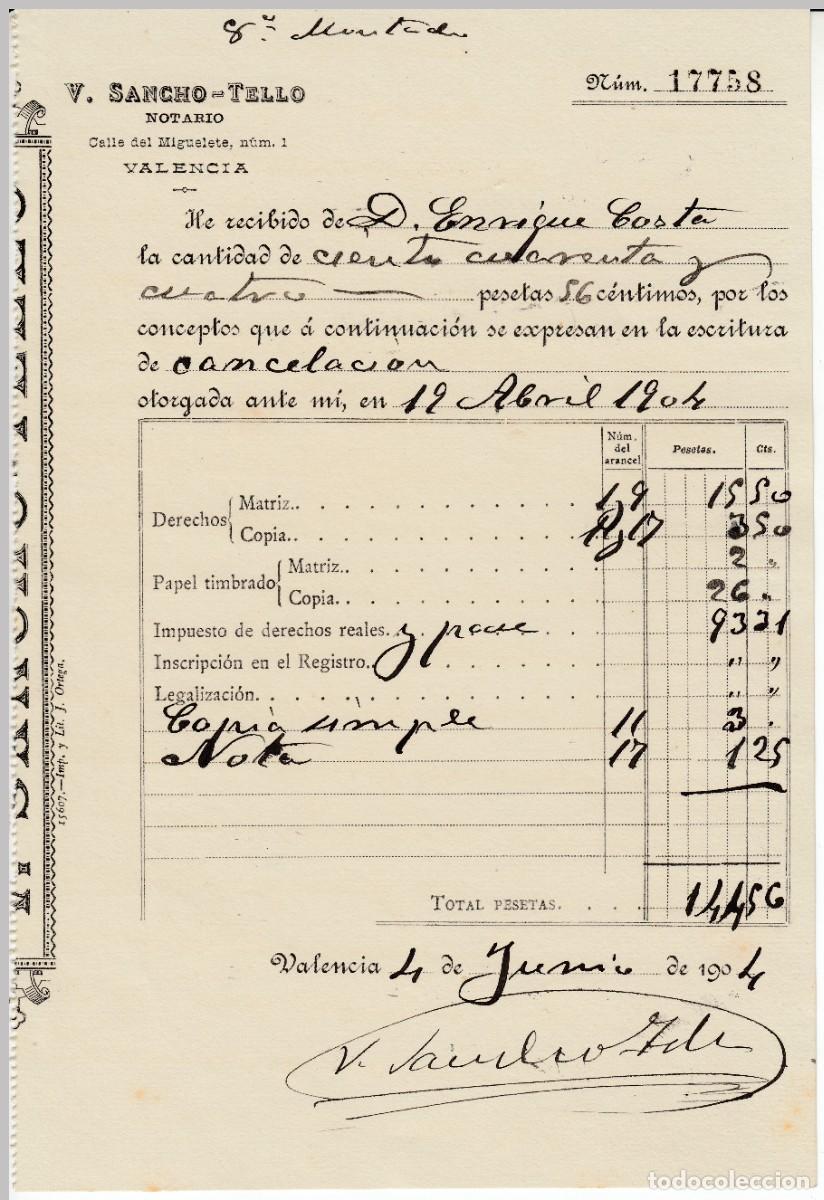 V. SANCHO-TELLO
NOTARIO
Calle del Miguelete, núm. 1
VALENCIA
Núm. 17758
He recibido de D. Enrique Costa
la cantidad de ciento cuarenta y
cuatro — pesetas 56 céntimos, por los
conceptos que á continuación se expresan en la escritura
de cancelacion
otorgada ante mí, en 19 Abril 1904
Núm. del arancel Pesetas. Cts.
Derechos Matriz. 19 15 50
Copia. 17 3 50
Papel timbrado Matriz. 2 "
Copia. 26 "
Impuesto de derechos reales. y pase 93 31
Inscripción en el Registro. " "
Legalización. " "
Copia simple 11 3 .
Nota 17 1 25
TOTAL PESETAS. 144 56
Valencia 4 de Junio de 1904
V. Sancho Tello
15607.—Imp. y Lit. J. Ortega.
todocoleccion